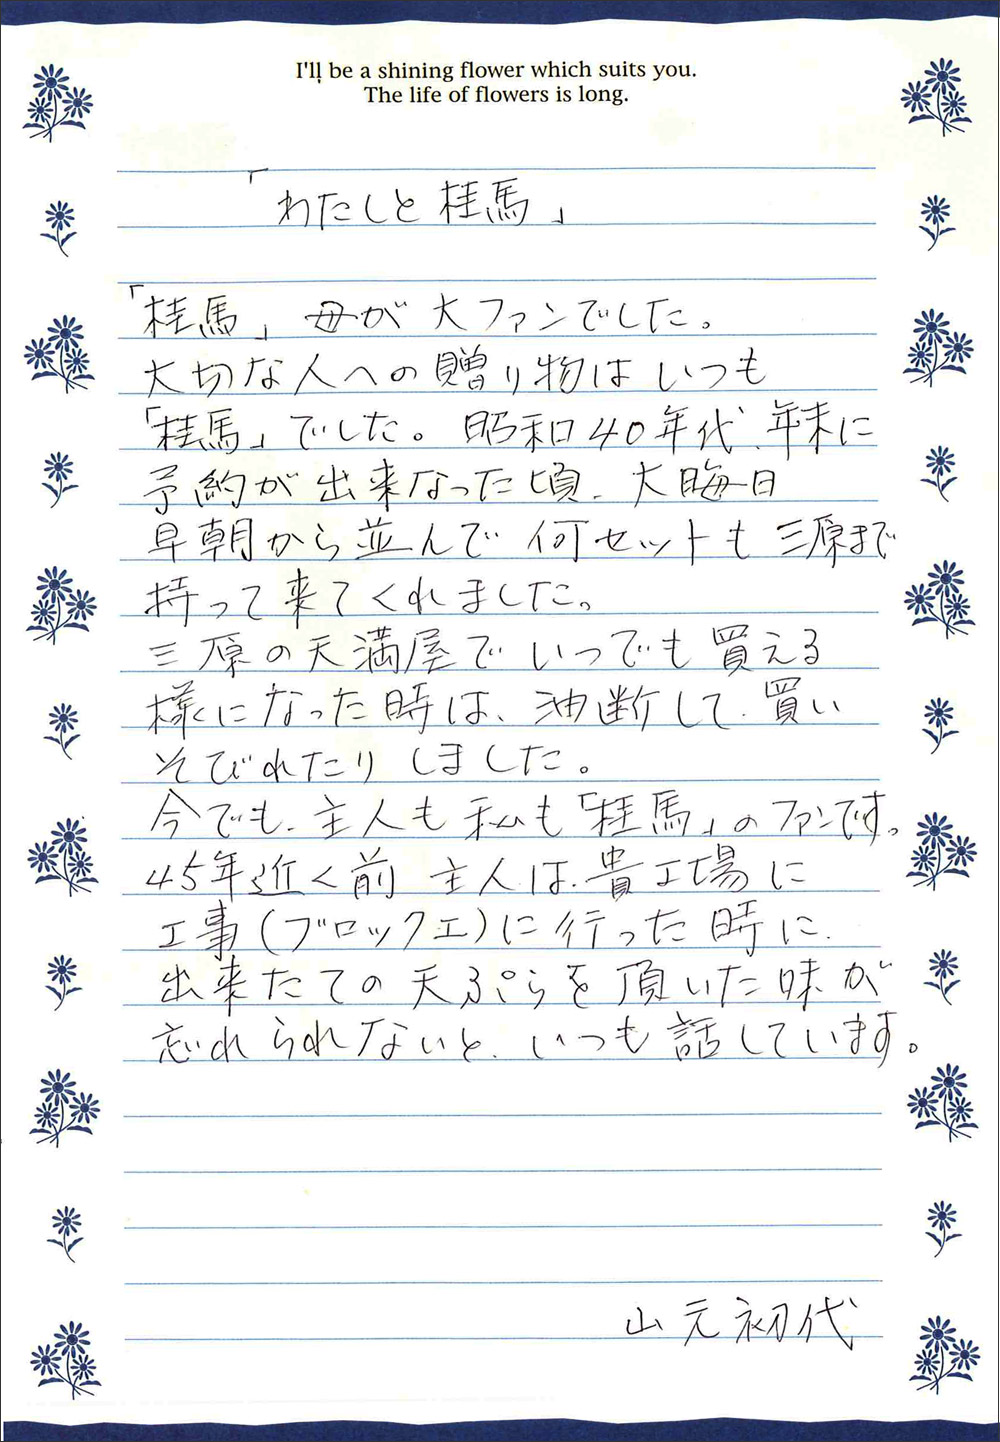 I'll be a shining flower which suits you.
The life of flowers is long.
「わたしと桂馬」
「桂馬」母が大ファンでした。
大切な人への贈り物はいつも
「桂馬」でした。昭和40年代、年末に
予約が出来なった頃、大晦日
早朝から並んで何セットも三原まで
持って来てくれました。
三原の天満屋でいつでも買える
様になった時は、油断して、買い
そびれたりしました。
今でも、主人も私も「桂馬」のファンです。
45年近く前 主人は、貴工場に
工事(ブロック工)に行った時に、
出来たての天ぷらを頂いた味が
忘れられないと、いつも話しています。
山元初代